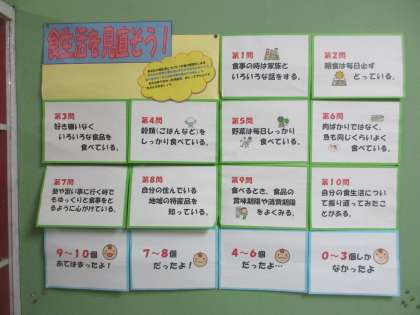 食生活を見直そう!
第1問
食事の時は家族と
いろいろな話をする。
第2問
朝食は毎日必ず
とっている。
第3問
好き嫌いなく
いろいろな食品を
食べている。
第4問
穀類(ごはんなど)を
しっかり食べている。
第5問
野菜は毎日しっかり
食べている。
第6問
肉ばかりではなく、
魚も同じくらいよく
食べている。
第7問
塾や習い事に行く時で
もゆっくりと食事をと
るように心がけている。
第8問
自分の住んでいる
地域の特産品を
知っている。
第9問
食べるとき、食品の
賞味期限や消費期限
をよくみる。
第10問
自分の食生活につい
て振り返ってみたこ
とがある。
9~10個
あてはまったよ!
7~8個
だったよ!
4~6個
だったよ…
0~3個しか
なかったよ